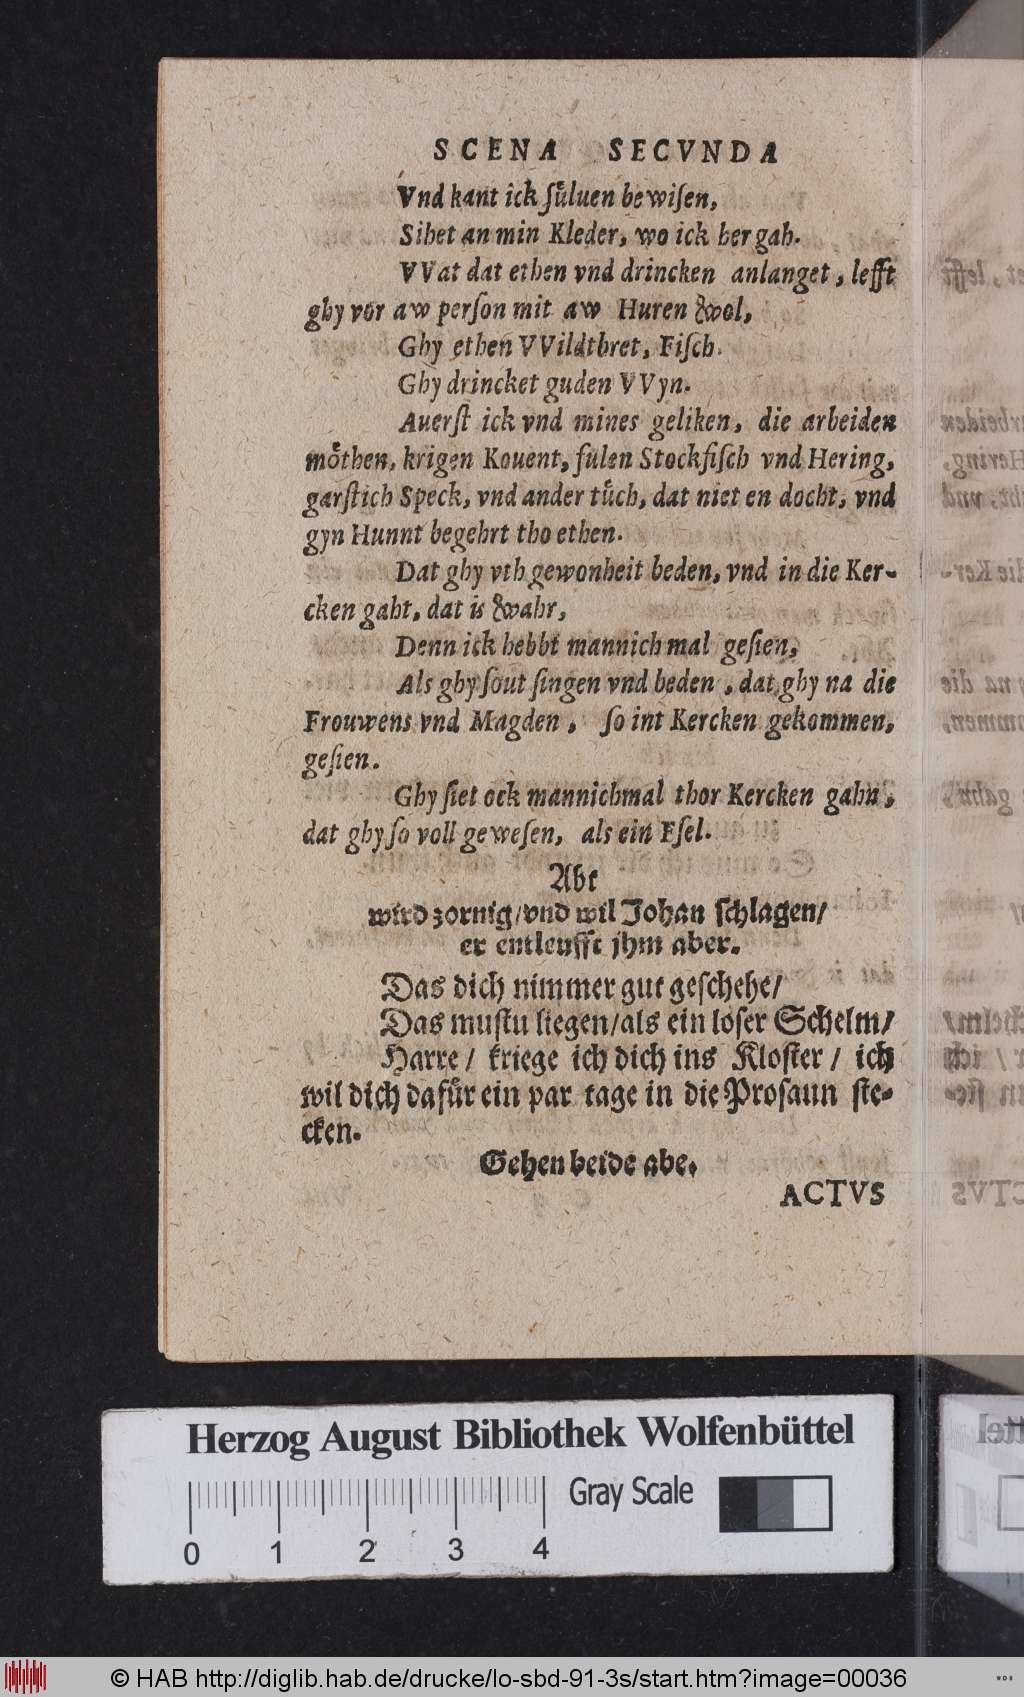 SCENA SECVNDA
Vnd kant ick ſuͤluen bewiſen,
Sihet an min Kleder, wo ick her gah.
VVat dat ethen vnd drincken anlanget, lefft
ghy vor aw perſon mit aw Huren wol,
Ghy ethen VVildtbret, Fiſch.
Ghy drincket guden VVyn.
Auerſt ick vnd mines geliken, die arbeiden
moͤthen, krigen Kouent, fulen Stockfiſch vnd Hering,
garſtich Speck, vnd ander tuͤch, dat niet en docht, vnd
gyn Hunnt begehrt tho ethen.
Dat ghy vth gewonheit beden, vnd in die Ker-
cken gaht, dat is wahr,
Denn ick hebbt mannich mal geſien,
Als ghy ſout ſingen vnd beden, dat ghy na die
Frouwens vnd Magden, ſo int Kercken gekommen,
geſien.
Ghy ſiet ock mannichmal thor Kercken gahn,
dat ghy ſo voll geweſen, als ein Eſel.
Abt
wird zornig/vnd wil Johan ſchlagen/
er entleufft jhm aber.
Das dich nimmer gut geſchehe/
Das muſtu liegen/als ein loſer Schelm/
Harre/ kriege ich dich ins Kloſter/ ich
wil dich dafuͤr ein par tage in die Proſaun ſte-
cken.
Gehen beide abe.
ACTVS
Herzog August Bibliothek Wolfenbüttel
Gray Scale
0 1 2 3 4
© HAB http://diglib.hab.de/drucke/lo-sbd-91-3s/start.htm?image=00036